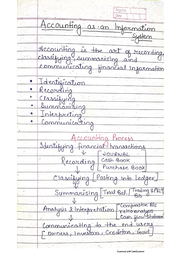 Accounting as an Information
System
Accounting is the art of recording,
classifying, summarizing and
communicating financial information
• Identification
• Recording
• Classifying
• Summarising
• Interpreting
• Communicating
Accounting Process
Identifying financial transactions
Recording Journals
Cash Book
Purchase Book
Classifying [Posting into Ledger]
Summarising [Trial Bal.
Analysis & Interpretation
Communicating to the end users
[Owners, Investors, Creditors,